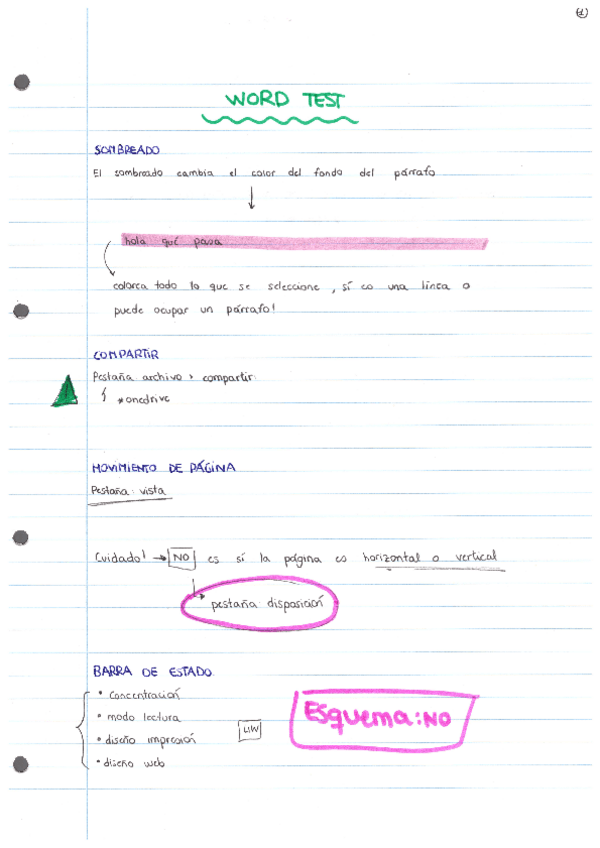 1
WORD TEST
SOMBREADO
El sombreado cambia el color del fondo del párrafo
hola qué pasa
colorea todo lo que se seleccione, sí es una línea o
puede ocupar un párrafo!
COMPARTIR
Pestaña archivo > compartir
*onedrive
MOVIMIENTO DE PÁGINA
Pestaña: vista
Cuidado! → NO es sí la página es horizontal o vertical
pestaña disposición
BARRA DE ESTADO
• Concentración
• modo lectura
• diseño impresión
• diseño web
Esquema: NO